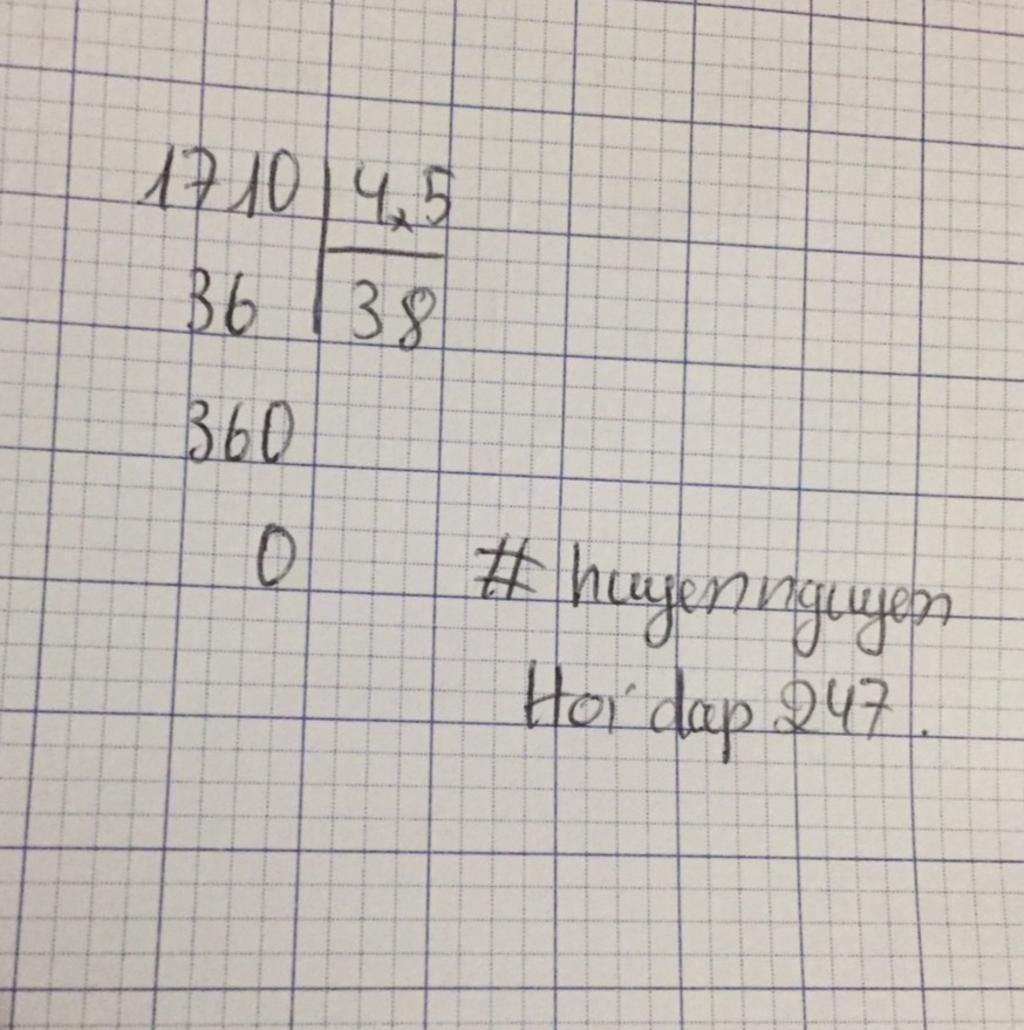 1710 | 4,5
36 | 38
360
0
# huyennguyen
Hoi dap 247.